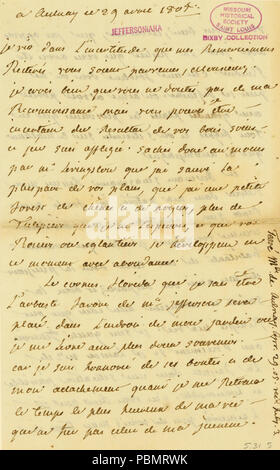 a aulnay ce 29 avril 1805
JEFFERSONIANA
MISSOURI
HISTORICAL
SOCIETY
SAINT LOUIS
BIXBY COLLECTION
je vis dans l'incertitude que mes Remerciemens
Reiterés vous soient parvenus, monsieur;
je crois bien que vous ne doutés pas de ma
Reconnaissance mais vous pouvés être
incertain du Resultat de vos bons soins
et j'en suis affligée. sachés donc au moins
par mr Livingston que j'ai sauvé la
pluspart de vos plans, que j'ai une petite
forest de chêne et de noyers, plus de
tulipiers que je ne l'espérais, et que vos
Rosiers ou eglantiers se developpent en
ce moment avec abondance.
Le cornus florida que je sais être
l'arbuste favori de mr jefferson sera
placé dans l'endroit de mon jardin où
je me livre aux plus doux souvenirs
car je suis honorée de ses bontés et de
mon attachement quand je me Retrace
le temps le plus heureux de ma vie
que ne fut pas celui de ma jeunesse.
Tessé Mde de
5.31 5
alamy
PBMRWK